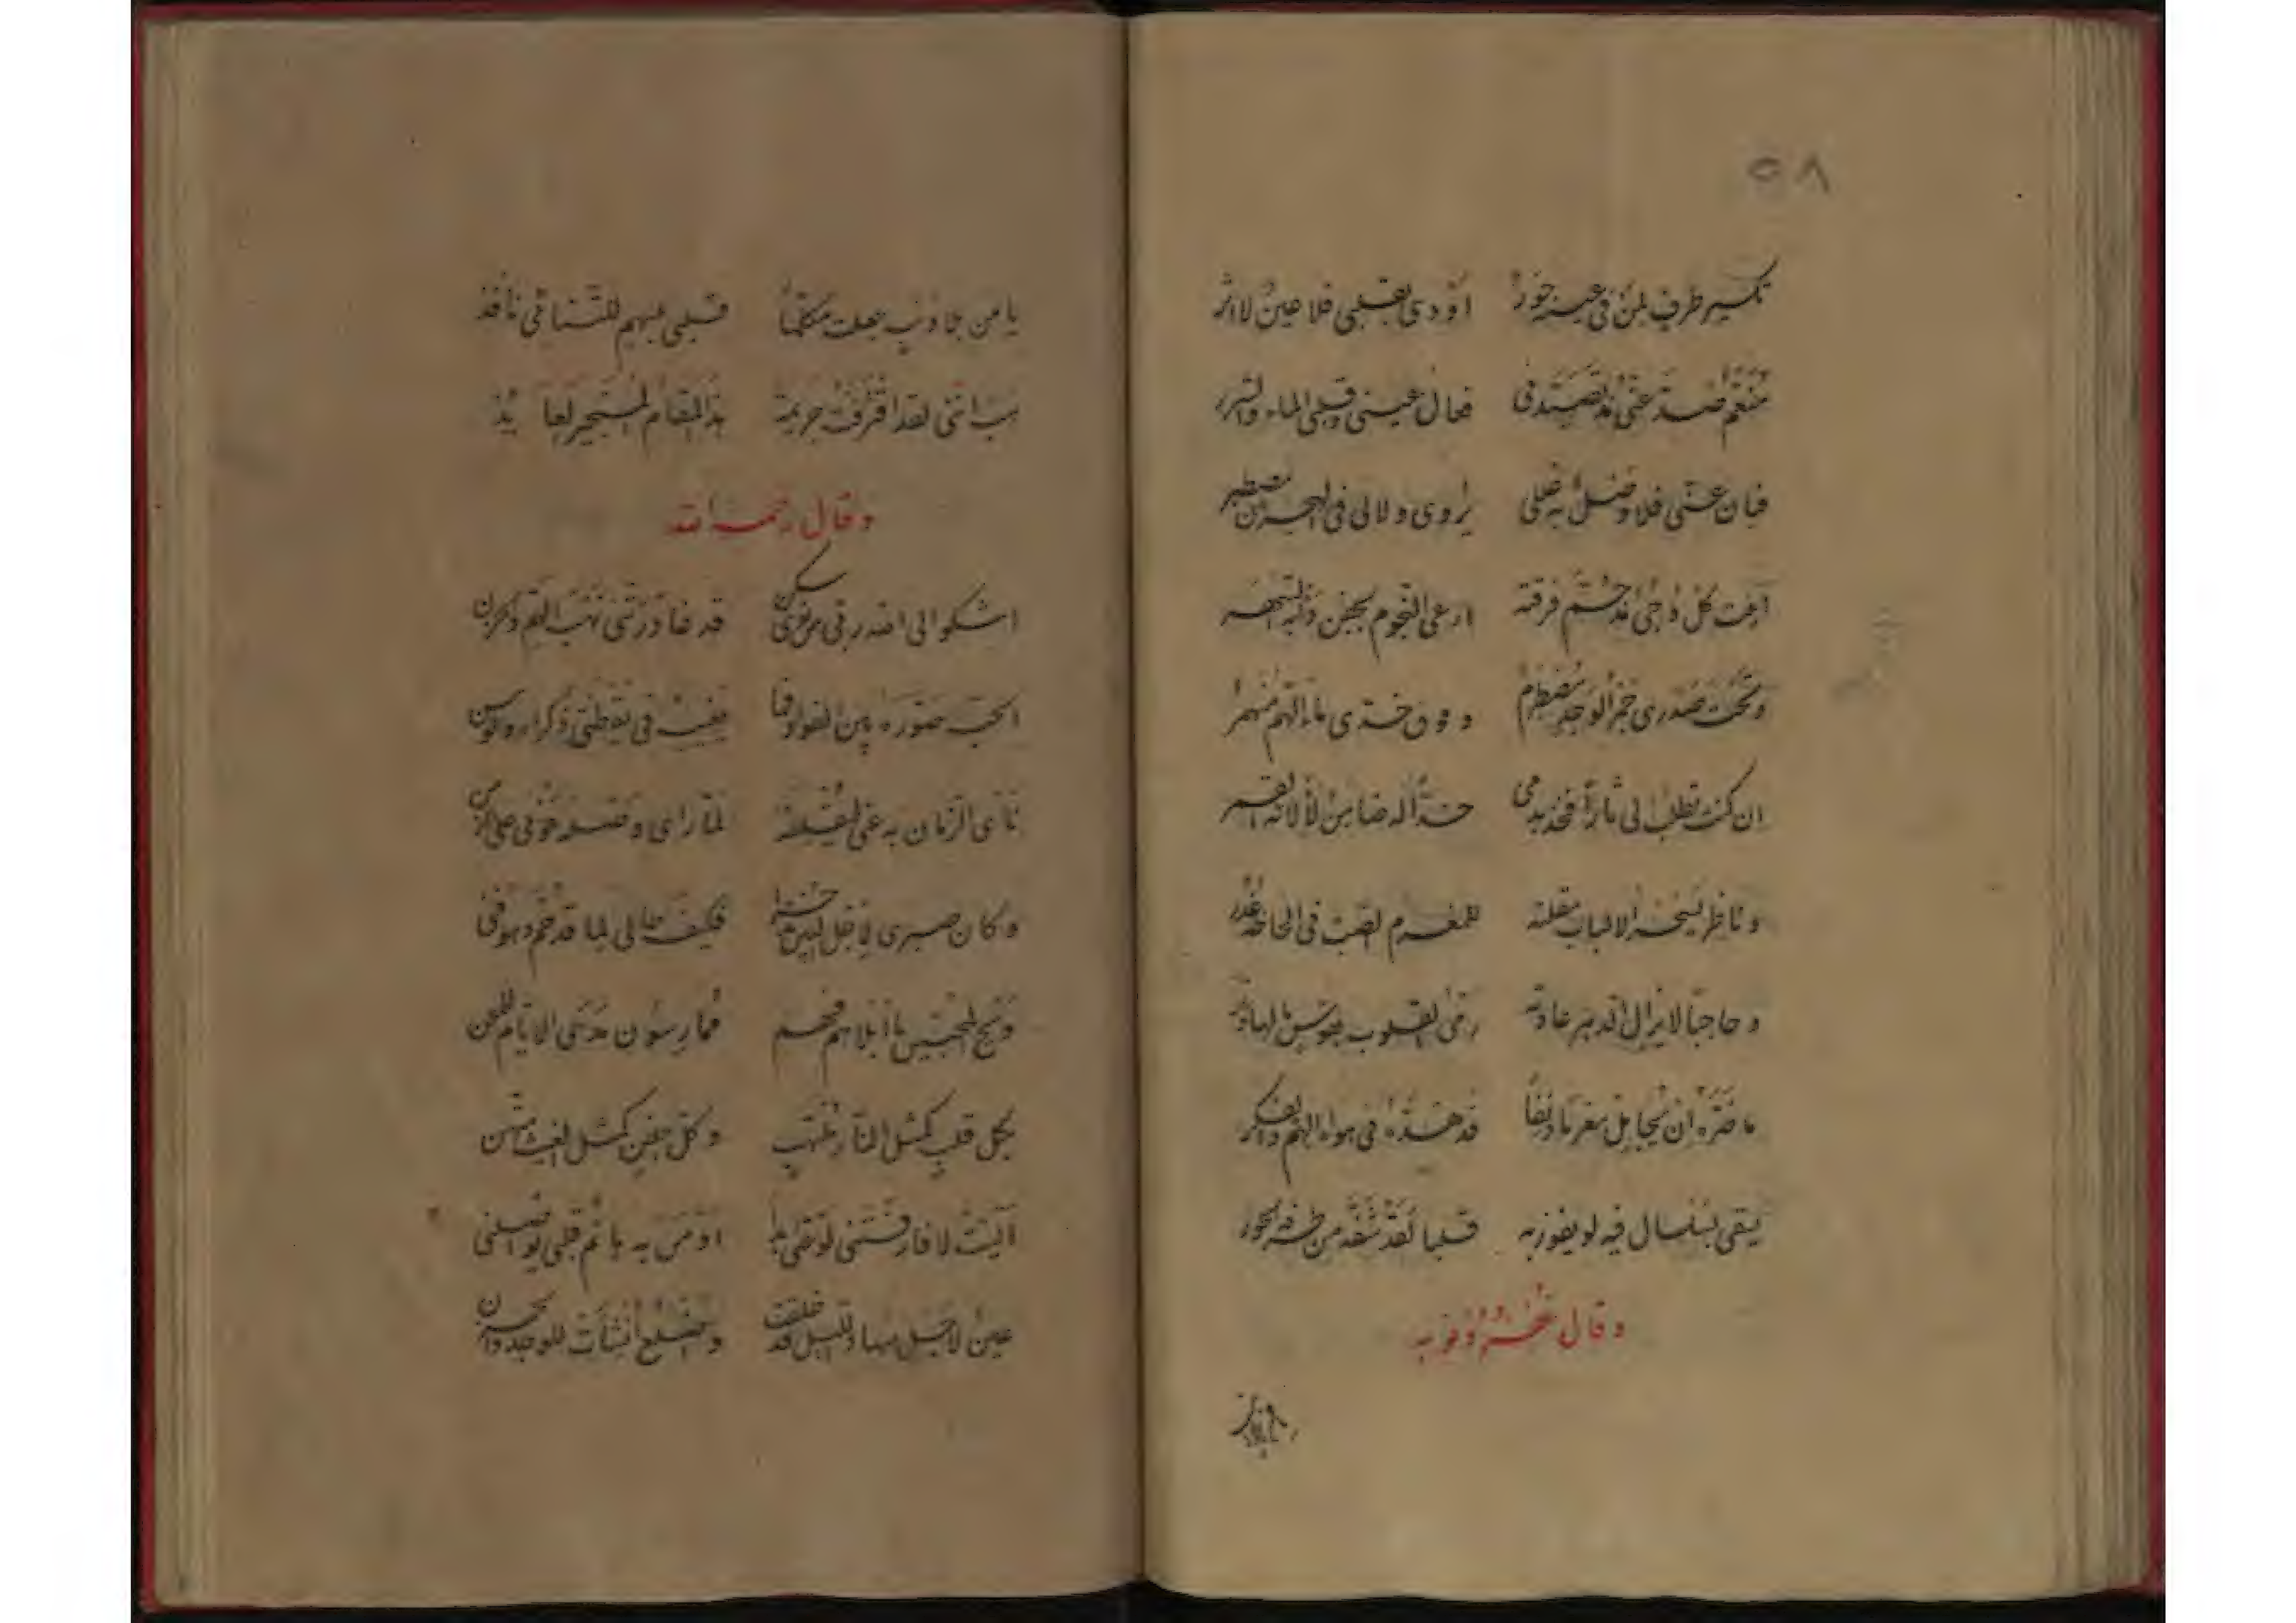 ٥٨
تكسير طرف لمن في عينه حور اودى بقلبي فلا عين ولا اثر
منعم صد عني مذ تصيدني فحال عيني وقلبي الماء والشرر
فبان عني فلا وصل به غللي يروى ولا لي في الهجر مصطبر
ابيت كل دجى مذ فرقته ارعى النجوم بجفن دأبه السهر
وتحت صدري جمر الوجد مضطرم وفوق خدي ماء منهمر
ان كنت تطلب لي ثارا فخذ بدمي خدا له ضامن لألاءه القمر
وناظر يسحر الالباب مقلته للمغرم الصب في الحاظه غدر
وحاجبا لا يزال الدهر عادته رمى القلوب بقوس ما لها وتر
ما ضره ان يجامل مغرما دنفا قد هده في هواه الهم والفكر
يقى بسلسال فيه لو يفوز به قلبا لقد شفه من طرفه الحور
وقال
يا من بلا ذنب جعلت مكلما قلبي بسهم للتنائي نافذ
هب انني لقد اقترفت جريمة هذا المقام المستجير العائذ
وقال رحمه الله
اشكو الى الله رقي من هوى سكن قد غادرتني نهب الهم والحزن
الحب صوره بين الفؤاد فما يغيب في يقظتي ذكراه والوسن
نأى الزمان به عني لمقلته لما راى وصله عوني على الزمن
وكان صبري لاجل البين مدخرا فكيف حالي لما قد خم وهو فني
ويح المحبين ما ابلاهم فهم فمارسون مدى الايام للمحن
بكل قلب كمثل النار ملتهب وكل جفن كمثل الغيث هتن
آليت لا فارقتني لوعتي ابدا او من به هائم قلبي يواصلني
عين لاجل سهاد الليل قد خلقت واضلع انشأت للوجد والحزن